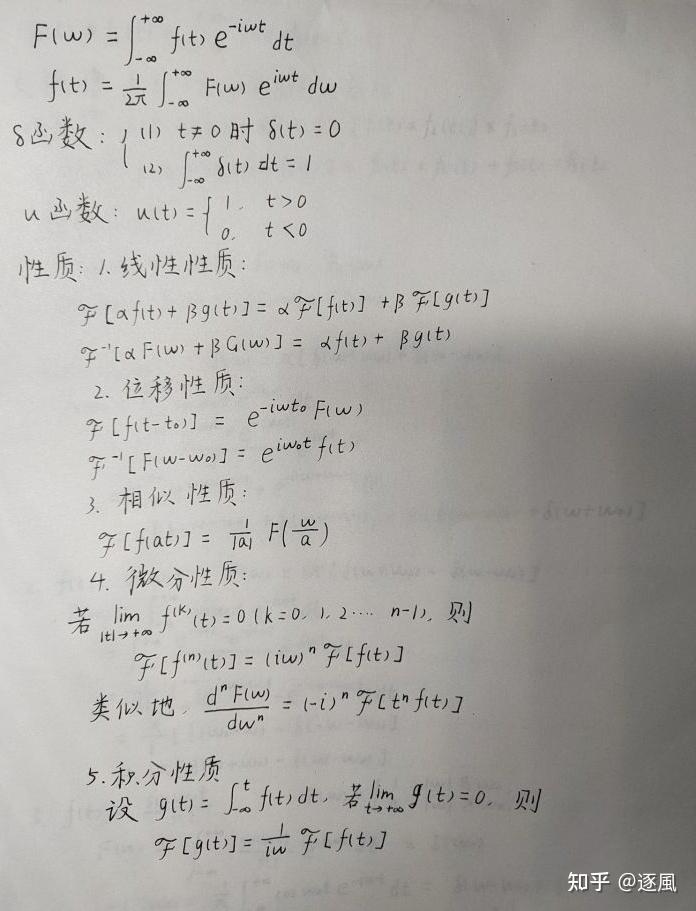 F(w) = ∫_{-∞}^{+∞} f(t) e^{-iwt} dt
f(t) = \frac{1}{2π} ∫_{-∞}^{+∞} F(w) e^{iwt} dw
δ函数: { (1) t≠0 时 δ(t) = 0
(2) ∫_{-∞}^{+∞} δ(t) dt = 1
u函数: u(t) = { 1, t>0
0, t<0
性质: 1. 线性性质:
ℱ[αf(t) + βg(t)] = αℱ[f(t)] + βℱ[g(t)]
ℱ^{-1}[αF(w) + βG(w)] = αf(t) + βg(t)
2. 位移性质:
ℱ[f(t-t_0)] = e^{-iwt_0} F(w)
ℱ^{-1}[F(w-w_0)] = e^{iw_0t} f(t)
3. 相似性质:
ℱ[f(at)] = \frac{1}{|a|} F(\frac{w}{a})
4. 微分性质:
若 lim_{|t|→+∞} f^{(k)}(t) = 0 (k=0, 1, 2 ···· n-1), 则
ℱ[f^{(n)}(t)] = (iw)^n ℱ[f(t)]
类似地, \frac{d^n F(w)}{dw^n} = (-i)^n ℱ[t^n f(t)]
5. 积分性质
设 g(t) = ∫_{-∞}^{t} f(t) dt, 若 lim_{t→+∞} g(t) = 0, 则
ℱ[g(t)] = \frac{1}{iw} ℱ[f(t)]
知乎 @逐風